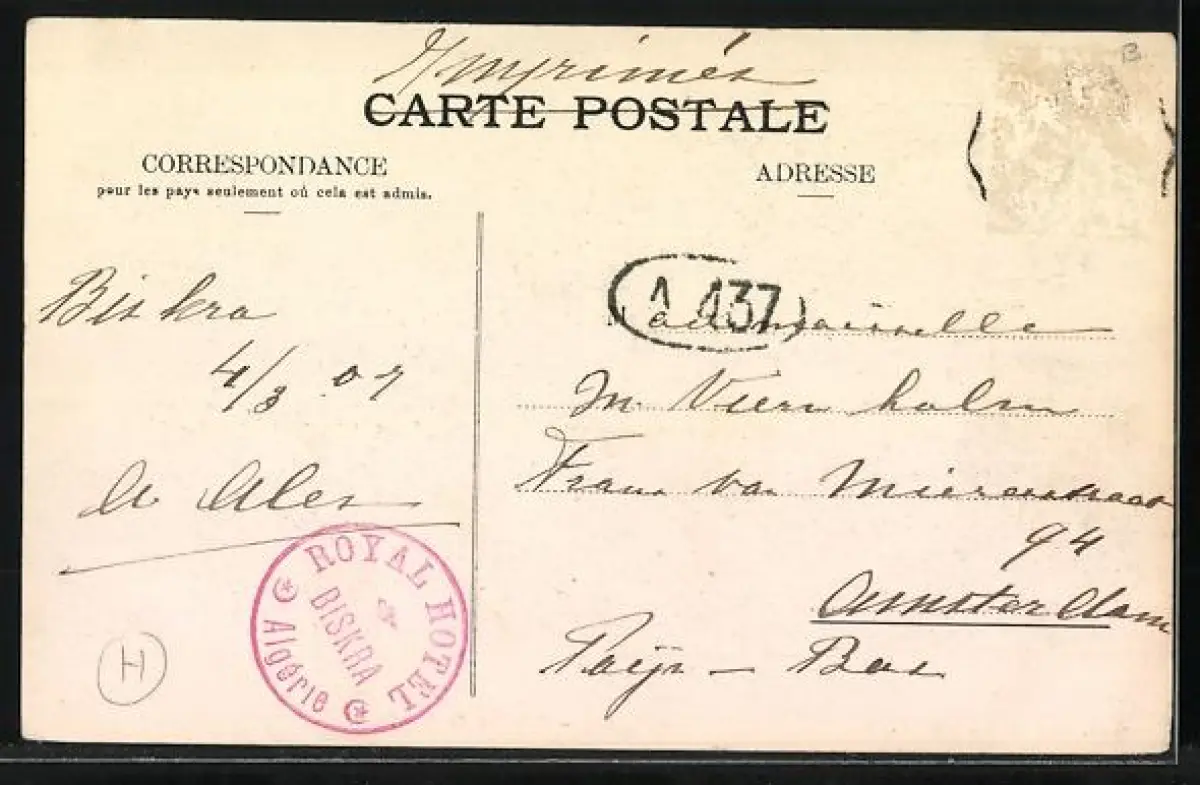 Imprimés
CARTE POSTALE
CORRESPONDANCE
pour les pays seulement où cela est admis.
ADRESSE
B
Biskra
4/3 07
A 437
Mademoiselle
Frans van Mierisstraat
94
Amsterdam
Paijs - Bas
ROYAL HOTEL
BISKRA
Algérie
H